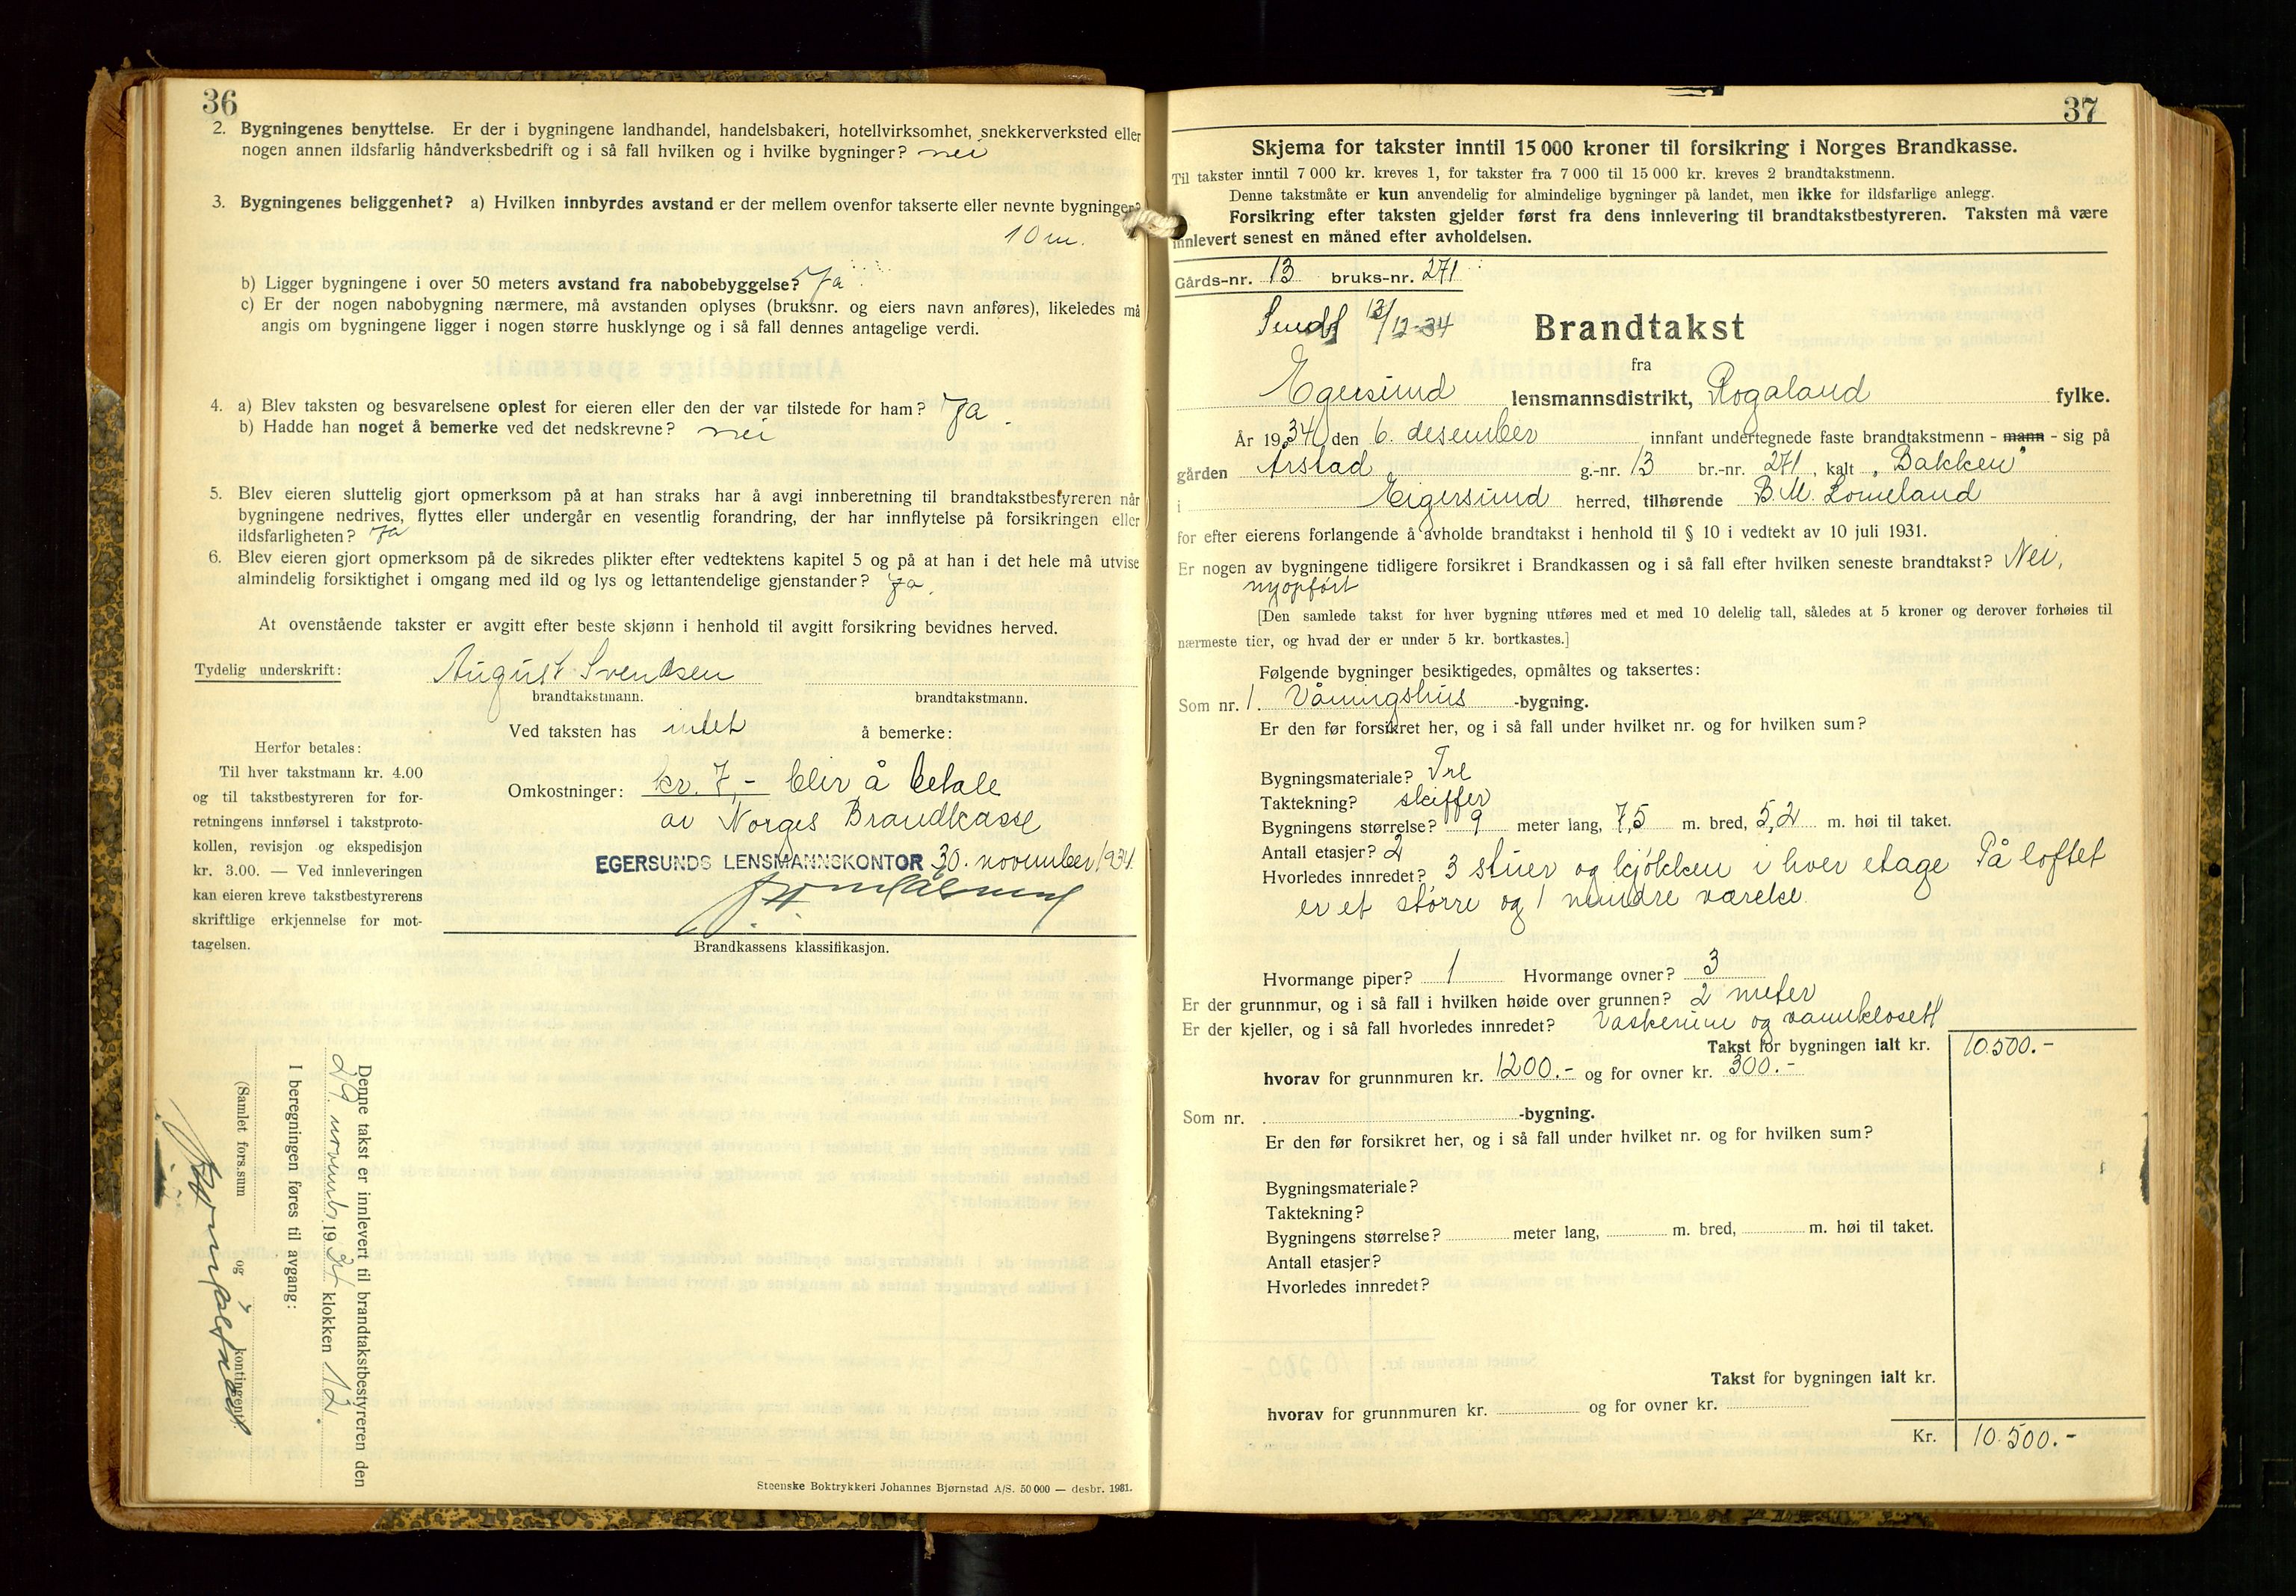 36
2. Bygningenes benyttelse. Er der i bygningene landhandel, handelsbakeri, hotellvirksomhet, snekkerverksted eller
nogen annen ildsfarlig håndverksbedrift og i så fall hvilken og i hvilke bygninger? nei
3. Bygningenes beliggenhet? a) Hvilken innbyrdes avstand er der mellem ovenfor takserte eller nevnte bygninger?
10 m.
b) Ligger bygningene i over 50 meters avstand fra nabobebyggelse? Ja
c) Er der nogen nabobygning nærmere, må avstanden oplyses (bruksnr. og eiers navn anføres), likeledes må
angis om bygningene ligger i nogen større husklynge og i så fall dennes antagelige verdi.
4. a) Blev taksten og besvarelsene oplest for eieren eller den der var tilstede for ham? Ja
b) Hadde han noget å bemerke ved det nedskrevne? nei
5. Blev eieren sluttelig gjort opmerksom på at han straks har å avgi innberetning til brandtakstbestyreren når
bygningene nedrives, flyttes eller undergår en vesentlig forandring, der har innflytelse på forsikringen eller
ildsfarligheten? Ja
6. Blev eieren gjort opmerksom på de sikredes plikter efter vedtektens kapitel 5 og på at han i det hele må utvise
almindelig forsiktighet i omgang med ild og lys og lettantendelige gjenstander? Ja.
At ovenstående takster er avgitt efter beste skjønn i henhold til avgitt forsikring bevidnes herved.
Tydelig underskrift: August Svendsen
brandtakstmann. brandtakstmann.
Ved taksten has intet å bemerke:
Herfor betales:
Til hver takstmann kr. 4.00
og til takstbestyreren for for-
retningens innførsel i takstproto-
kollen, revisjon og ekspedisjon
kr. 3.00. — Ved innleveringen
kan eieren kreve takstbestyrerens
skriftlige erkjennelse for mot-
tagelsen.
Omkostninger: kr. 7,- blir å betale
av Norges Brandkasse
EGERSUNDS LENSMANNSKONTOR 30. november 1934.
Brandkassens klassifikasjon.
Denne takst er innlevert til brandtakstbestyreren den
29. novembr. 1934 klokken 12.
I beregningen føres til avgang:
(Samlet fors.sum og kontingent).
Steenske Boktrykkeri Johannes Bjørnstad A/S. 50 000 — desbr. 1931.
37
Skjema for takster inntil 15 000 kroner til forsikring i Norges Brandkasse.
Til takster inntil 7 000 kr. kreves 1, for takster fra 7 000 til 15 000 kr. kreves 2 brandtakstmenn.
Denne takstmåte er kun anvendelig for almindelige bygninger på landet, men ikke for ildsfarlige anlegg.
Forsikring efter taksten gjelder først fra dens innlevering til brandtakstbestyreren. Taksten må være
innlevert senest en måned efter avholdelsen.
Gårds-nr. 13 bruks-nr. 271
13/12-34
Brandtakst
fra
Egersund lensmannsdistrikt, Rogaland fylke.
År 1934 den 6. desember innfant undertegnede faste brandtakstmenn - mann - sig på
gården Årstad g.-nr. 13 br.-nr. 271, kalt „Bakken"
i Eigersund herred, tilhørende B. M. Lomeland
for efter eierens forlangende å avholde brandtakst i henhold til § 10 i vedtekt av 10 juli 1931.
Er nogen av bygningene tidligere forsikret i Brandkassen og i så fall efter hvilken seneste brandtakst? Nei,
nyopført
[Den samlede takst for hver bygning utføres med et med 10 delelig tall, således at 5 kroner og derover forhøies til
nærmeste tier, og hvad der er under 5 kr. bortkastes.]
Følgende bygninger besiktigedes, opmåltes og taksertes:
Som nr. 1. Våningshus -bygning.
Er den før forsikret her, og i så fall under hvilket nr. og for hvilken sum?
Bygningsmateriale? Tre
Taktekning? skiffer
Bygningens størrelse? 9 meter lang, 7,5 m. bred, 5,2 m. høi til taket.
Antall etasjer? 2
Hvorledes innredet? 3 stuer og kjøkken i hver etage På loftet
er et større og 1 mindre værelse.
Hvormange piper? 1 Hvormange ovner? 3
Er der grunnmur, og i så fall i hvilken høide over grunnen? 2 meter
Er der kjeller, og i så fall hvorledes innredet? Vaskerum og vannklosett
Takst for bygningen ialt kr. 10.500.-
hvorav for grunnmuren kr. 1200.- og for ovner kr. 300.-
Som nr. -bygning.
Er den før forsikret her, og i så fall under hvilket nr. og for hvilken sum?
Bygningsmateriale?
Taktekning?
Bygningens størrelse? meter lang, m. bred, m. høi til taket.
Antall etasjer?
Hvorledes innredet?
Takst for bygningen ialt kr.
hvorav for grunnmuren kr. og for ovner kr.
Kr. 10.500.-